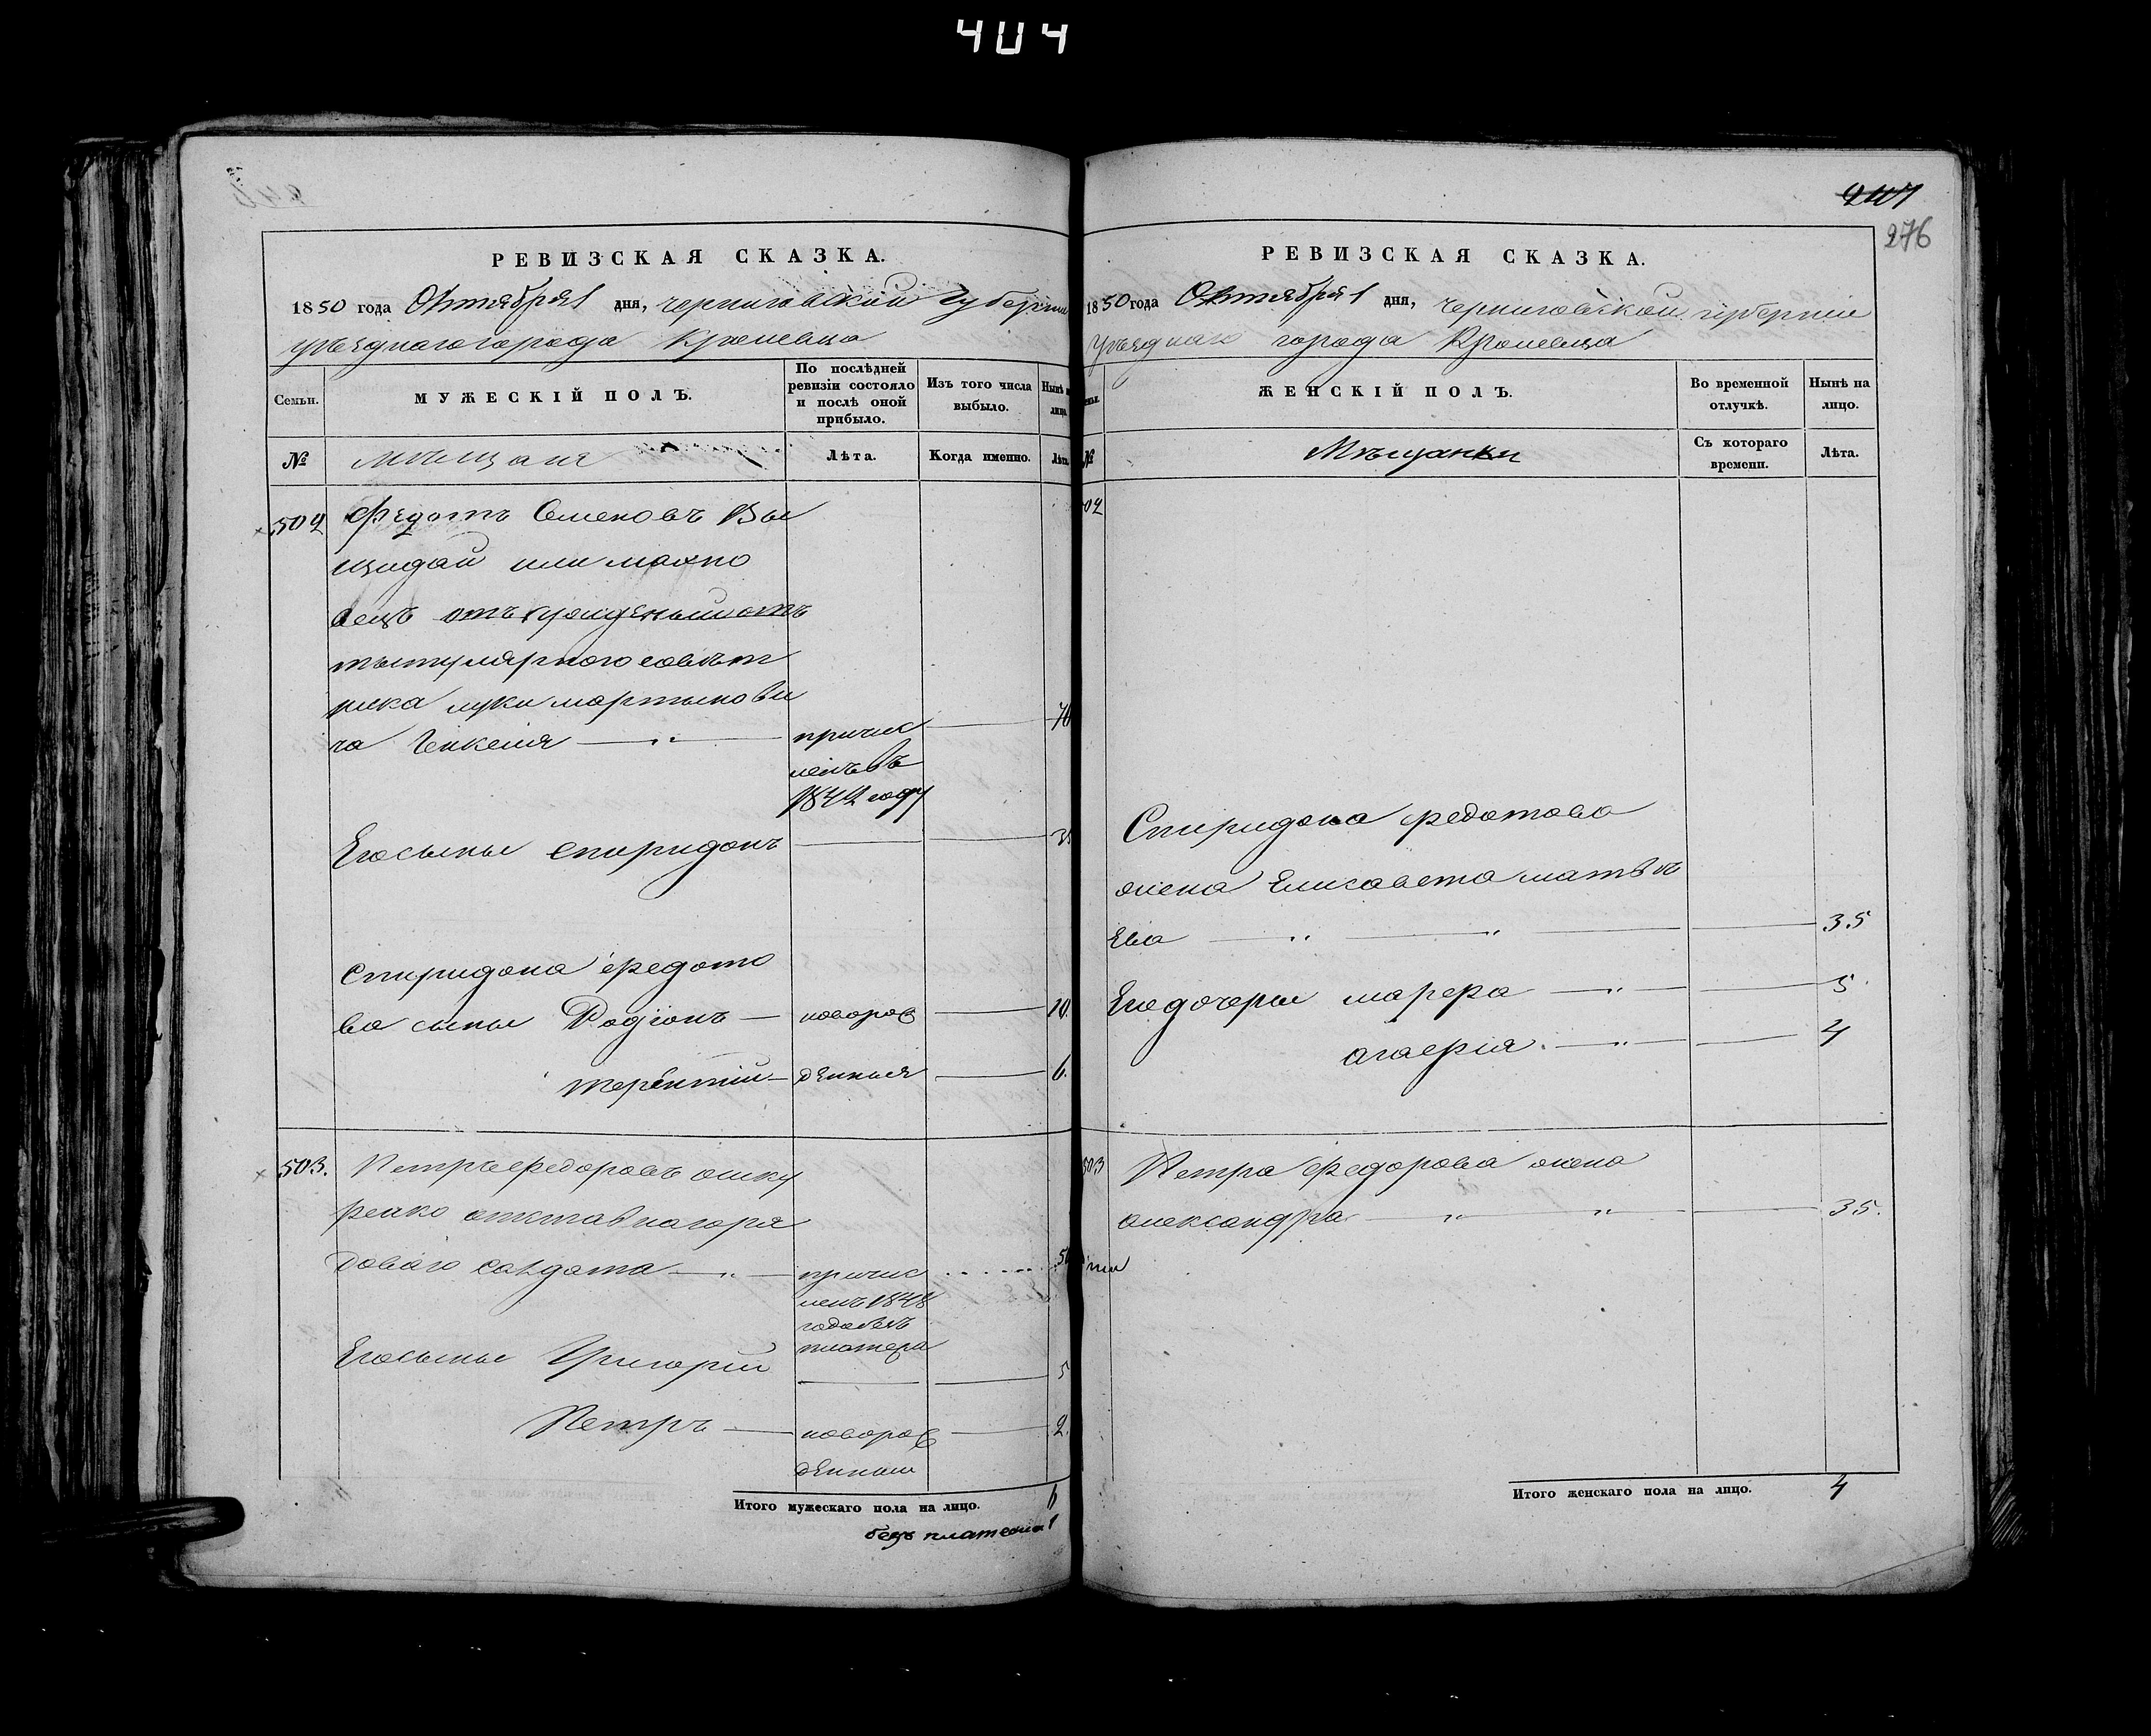 404
РЕВИЗСКАЯ СКАЗКА.
1850 года Октября 1 дня, Черниговской Губерніи
уѣзднаго города Кролевца
Семьи.
МУЖЕСКІЙ ПОЛЪ.
По послѣдней ревизіи состояло и послѣ оной прибыло.
Изъ того числа выбыло.
Нынѣ на лицо.
№
Мѣщане
Лѣта.
Когда именно.
Лѣта.
502
Федотъ Семеновъ Вы
щидай или Махно
вецъ отъ
титулярного совѣт
ника Луки Мартынови
ча
причис
ленъ въ
1842 году
Его сыны Спиридонъ
Спиридона Федото
ва сыны Родіонъ — новорож 10.
Терентій — денныя 6.
503.
Петръ Федоровъ Ошку
ренко отставнаго ря
доваго солдата — причис
ленъ 1848
года безъ
платежа
Его сыны Григорій 5
Петръ — новорож 2.
денный
Итого мужескаго пола на лицо. 6
безъ платежа 1
247
276
РЕВИЗСКАЯ СКАЗКА.
1850 года Октября 1 дня, Черниговской губерніи
Уѣзднаго города Кролевца
ЖЕНСКІЙ ПОЛЪ.
Во временной отлучкѣ.
Нынѣ на лицо.
№
Мѣщанки
Съ котораго времени.
Лѣта.
02
Спиридона Федотова
жена Елисавета Матвѣ
ева 35
Его дочеры Марфа 5
Агафія 4
503
Петра Федорова жена
Александра 35.
Итого женскаго пола на лицо. 4